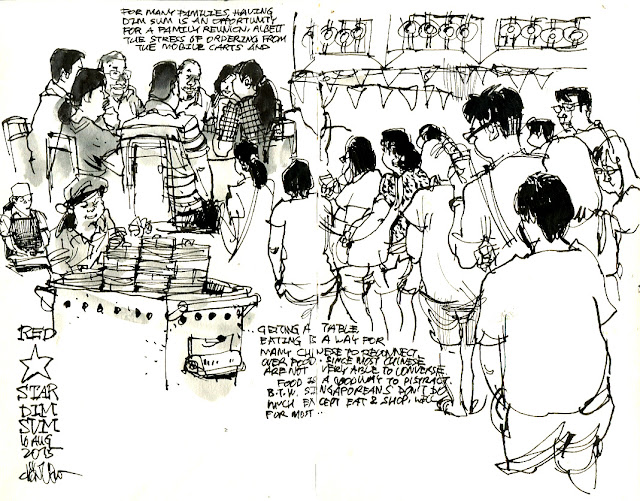 FOR MANY FAMILIES, HAVING
DIM SUM IS AN OPPORTUNITY
FOR A FAMILY REUNION. ALBEIT
THE STRESS OF ORDERING FROM
THE MOBILE CARTS AND
GETTING A TABLE
EATING IS A WAY FOR
MANY CHINESE TO RECONNECT
OVER FOOD. SINCE MOST CHINESE
ARE NOT VERY ABLE TO CONVERSE.
FOOD IS A GOOD WAY TO DISTRACT.
B.T.W. SINGAPOREANS DON'T DO
MUCH EXCEPT EAT & SHOP, WELL
FOR MOST..
RED
STAR
DIM
SUM
16 AUG
2015